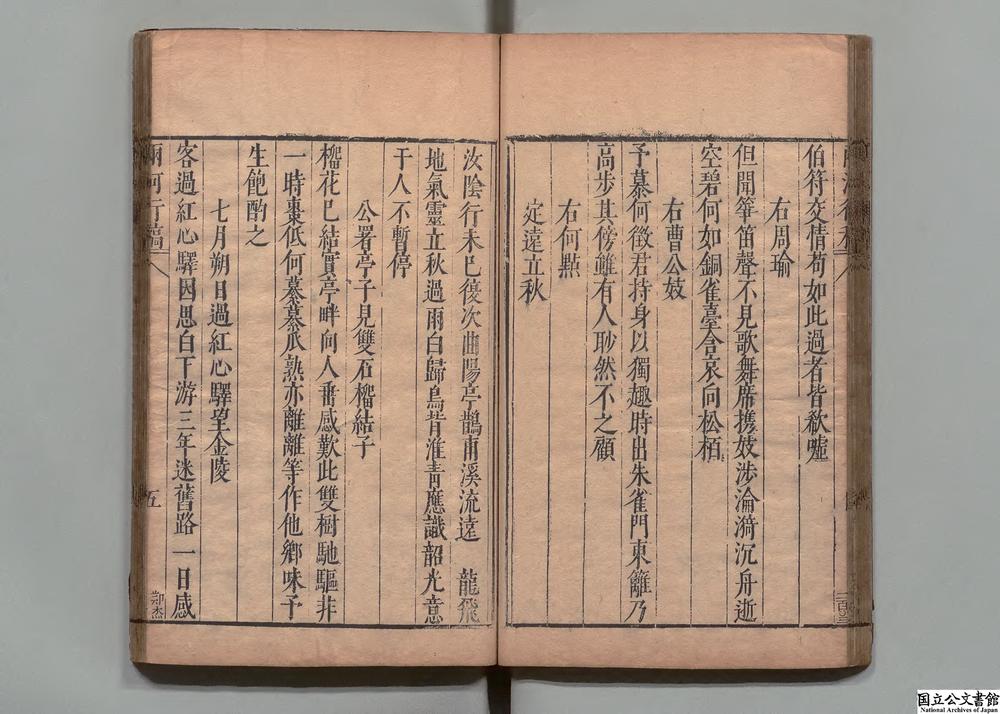 伯符交情苟如此過者皆欷噓
右周瑜
但聞箏笛聲不見歌舞席携妓涉淪漪沉舟逝
空碧何如銅雀臺含哀向松栢
右曹公妓
予慕何徵君持身以獨趣時出朱雀門東籬乃
高步其傍雖有人眇然不之顧
右何點
定遠立秋
汝陰行未已復次曲陽亭鵲甫溪流遠 龍飛
地氣靈立秋過雨白歸鳥背淮青應識韶光意
于人不暫停
公署亭子見雙石榴結子
榴花已結實亭畔向人垂感歎此雙樹馳驅非
一時棗低何纂纂瓜熟亦離離等作他鄉味予
生飽酌之
七月朔日過紅心驛望金陵
客過紅心驛因思白下游三年迷舊路一日感
兩河行稿
五
鄒杰
国立公文書館
National Archives of Japan